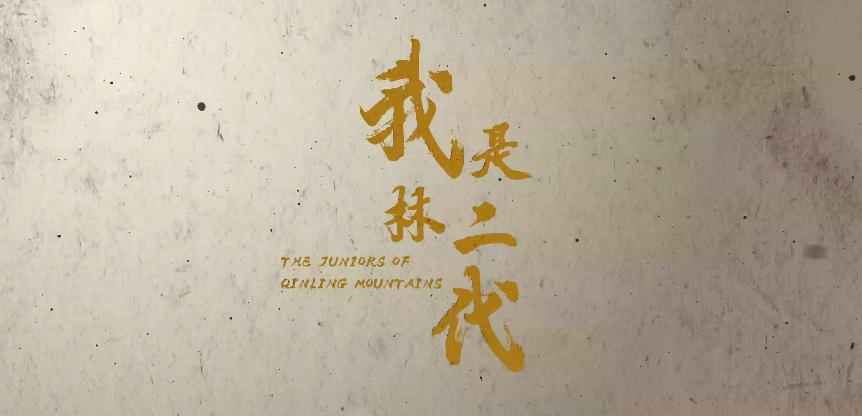 我是
林二代
THE JUNIORS OF
QINLING MOUNTAINS